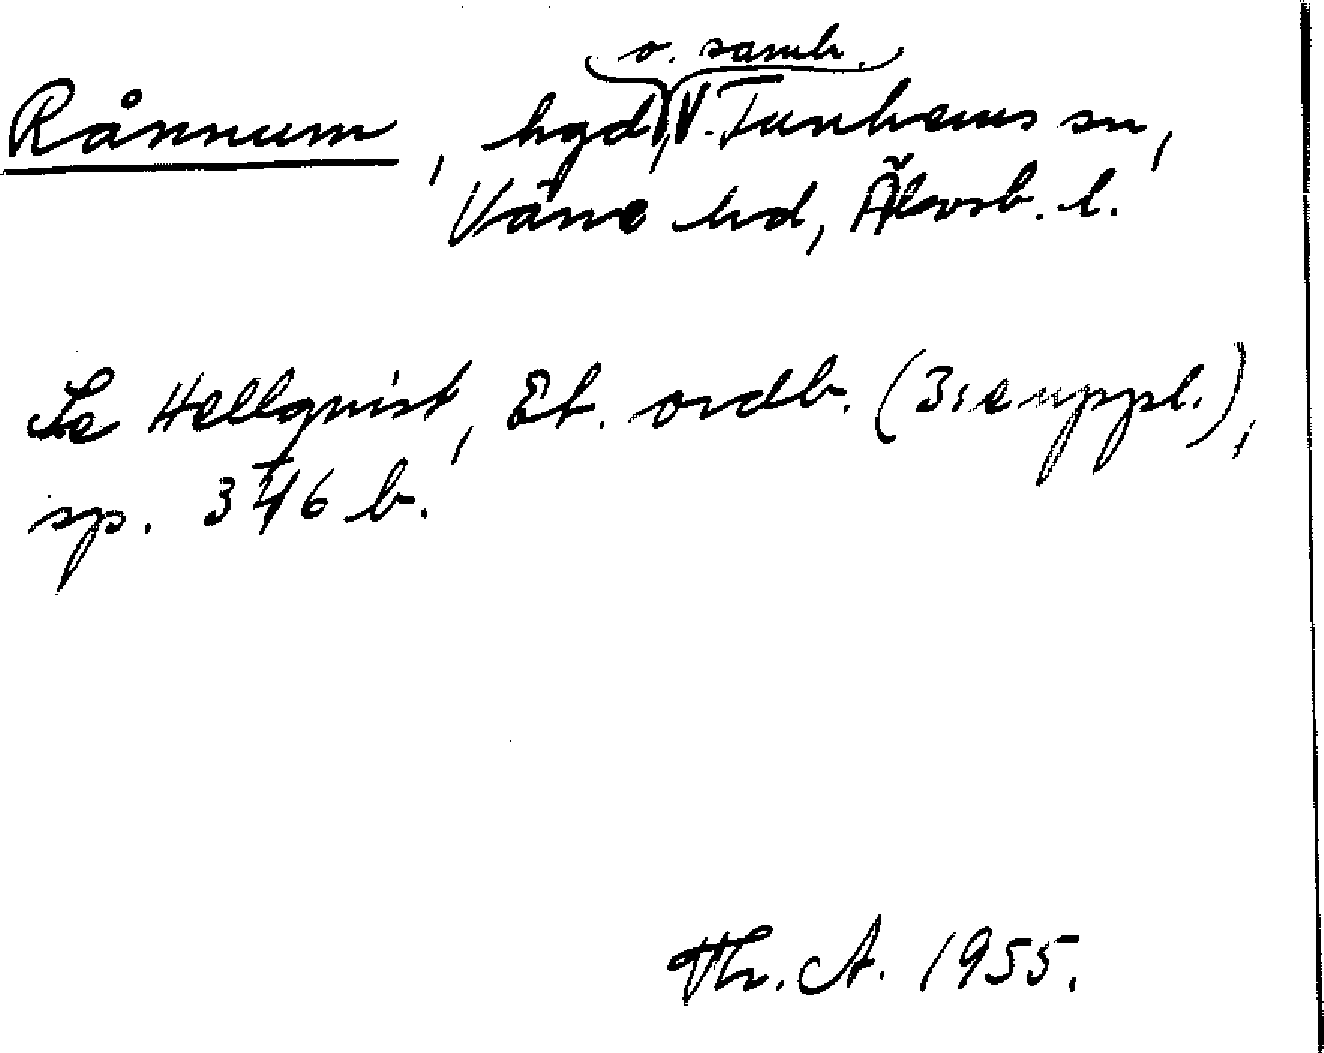 o. samh.
Rånnum, hgd, V. Tunhems sn,
Väne hd, Älvsb. l.
Se Hellquist, Et. ordb. (3:e uppl.),
sp. 346 b.
Th. A. 1955.